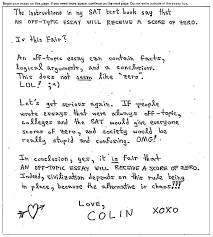 Begin your essay on this page. If you need more space, continue on the next page. Do not write outside of the essay box.
The instructions in my SAT test book say that
AN OFF-TOPIC ESSAY WILL RECEIVE A SCORE OF ZERO.
Is this Fair?
An off-topic essay can contain facts,
logical arguments, and a conclusion.
This does not seem like "zero".
LOL! ;o)
Let's get serious again. If people
wrote essays that were always off-topic,
colleges and the SAT would give everyone
scores of zero, and society would be
really stupid and confusing. OMG!
In conclusion, yes, it is fair that
AN OFF-TOPIC ESSAY WILL RECEIVE A SCORE OF ZERO.
Indeed, civilization depends on this rule being
in place, because the alternative is chaos!!!
Love,
COLIN XOXO